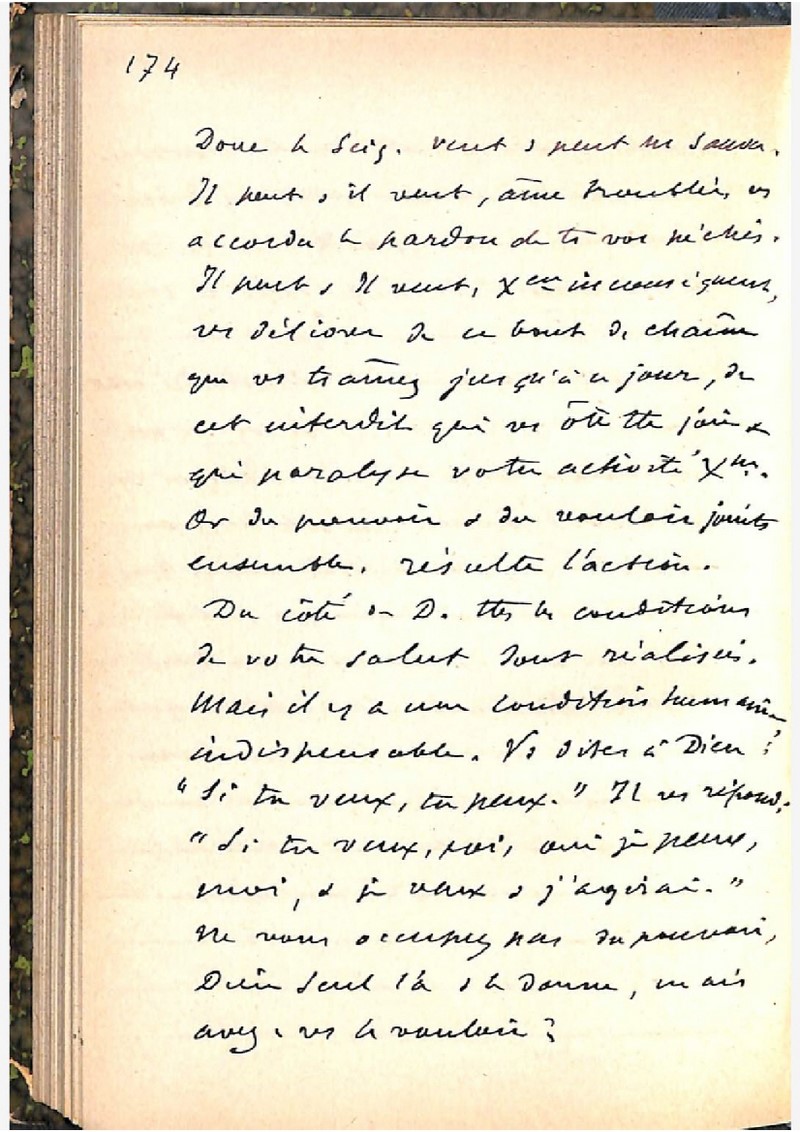 174
Donc le Seig. veut & peut ns sauver.
Il peut & il veut, âme troublée, vs
accorder le pardon de ts vos péchés.
Il peut & Il veut, Xen inconséquent,
vs délivrer de ce bout de chaîne
que vs traînez jusqu'à ce jour, de
cet interdit qui vs ôte tte joie &
qui paralyse votre activité Xne.
Or du pouvoir & du vouloir joints
ensemble, résulte l'action.
Du côté de D. ttes les conditions
de votre salut sont réalisées.
Mais il y a une condition humaine
indispensable. Vs dites à Dieu :
"Si tu veux, tu peux." Il vs répond:
"Si tu veux, toi, oui je peux,
moi, & je veux & j'agirai."
Ne vous occupez pas du pouvoir,
Dieu seul l'a & le donne, mais
avez-vs le vouloir ?